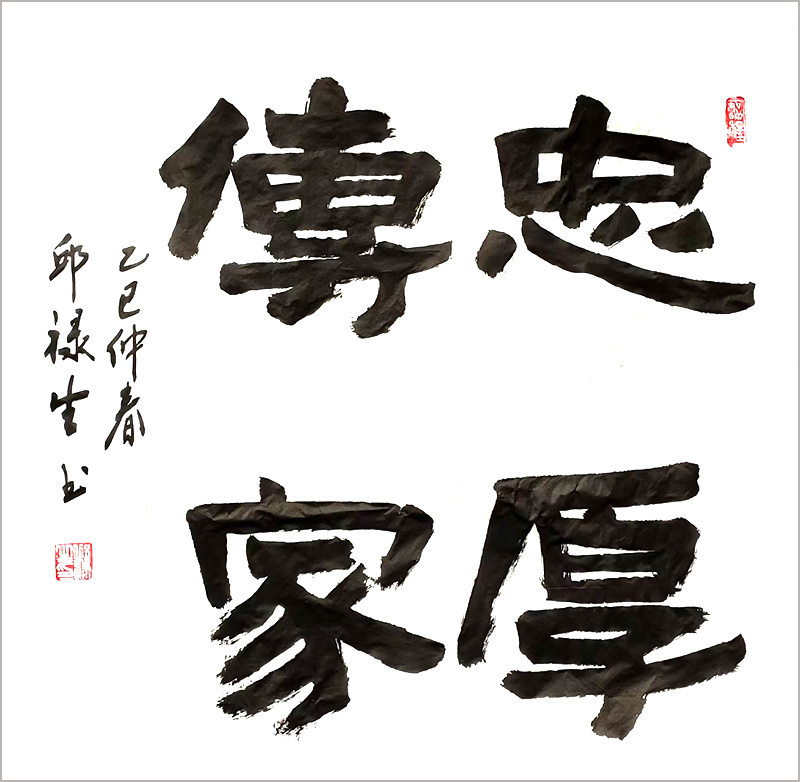 忠厚
傳家
乙巳仲春
邱禄生书